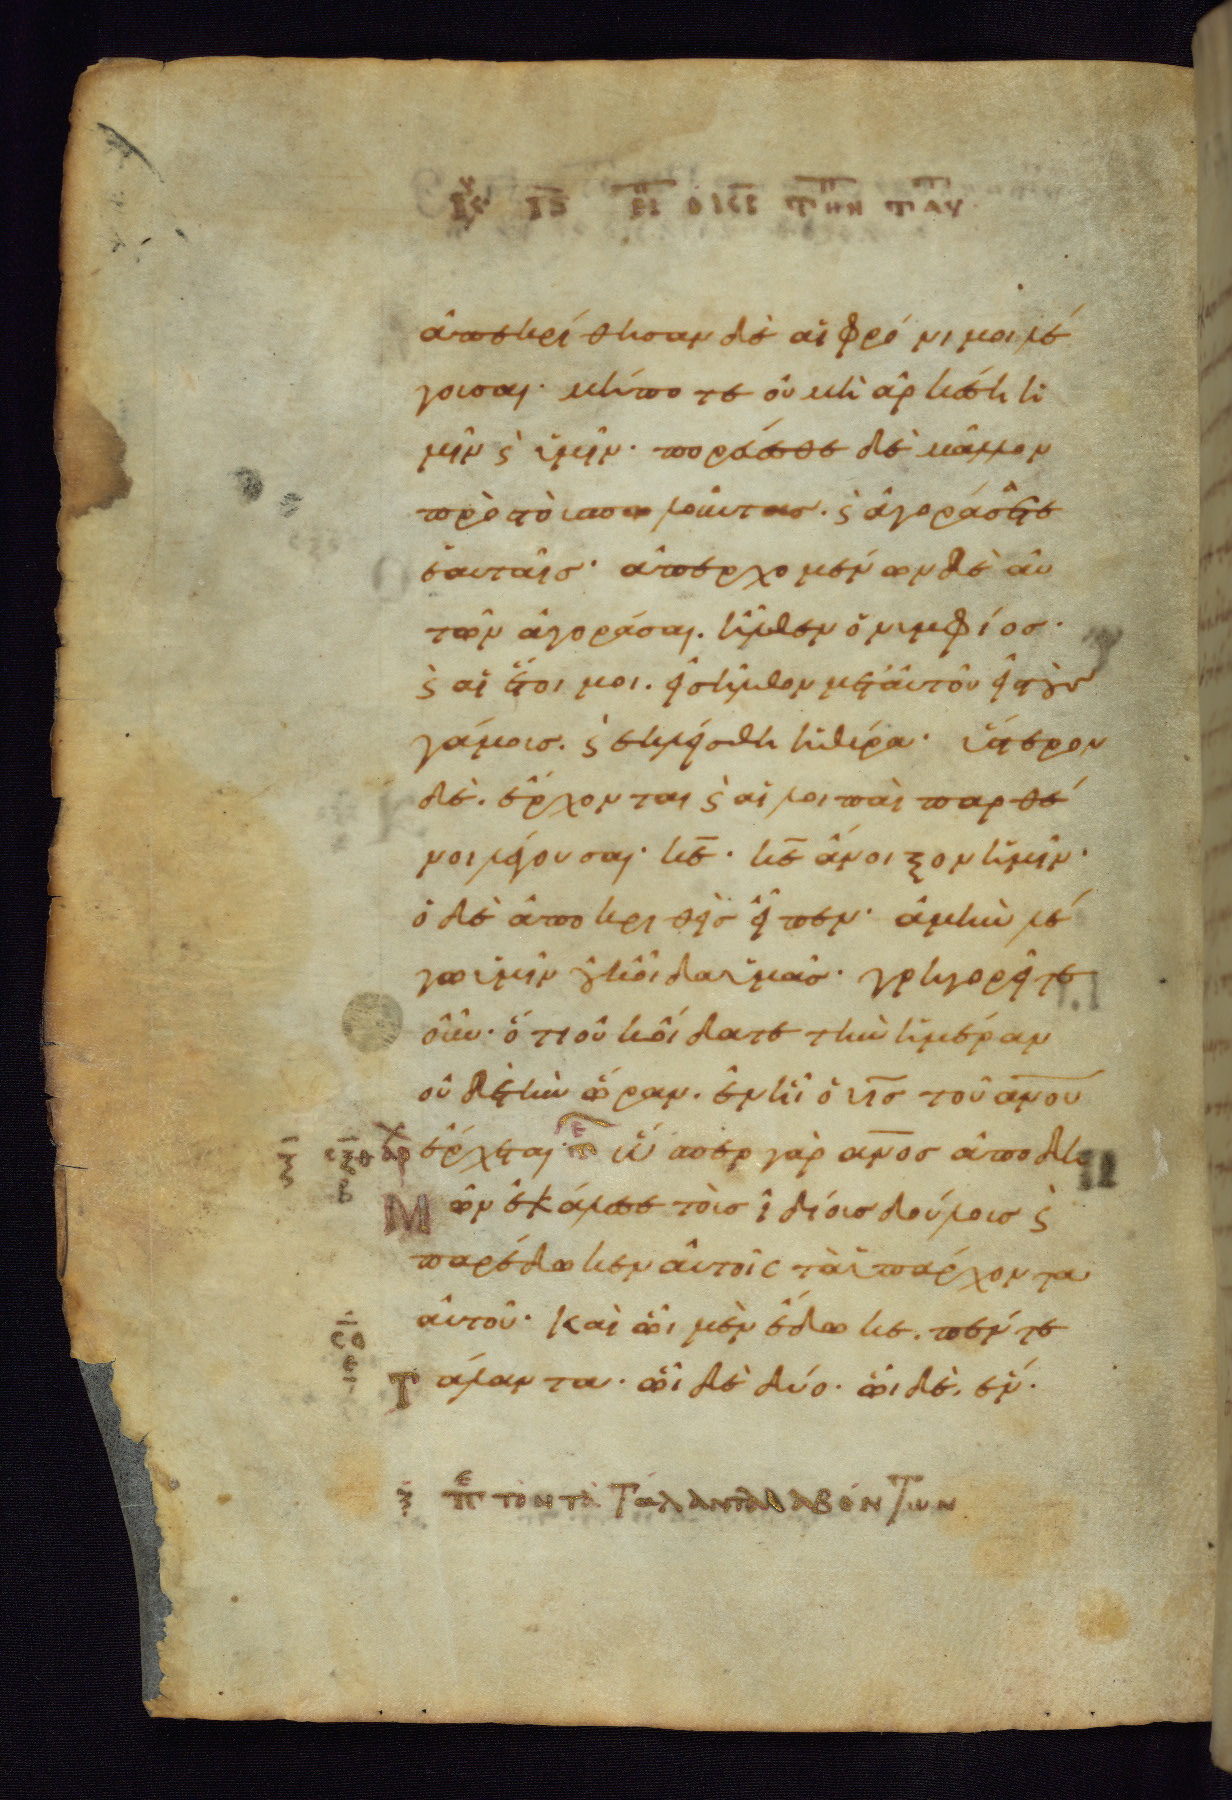 ἀπεκρίθησαν δὲ αἱ φρόνιμοι λέ
γουσαι· μήποτε οὐ μὴ ἀρκέση ἡ
μῖν ϗ ὑμῖν· πορεύεσθε δὲ μᾶλλον
πρὸς τοὺς πωλοῦντας. ϗ ἀγοράσατε
ἑαυταῖς· ἀπερχομένων δὲ αὐ
τῶν ἀγοράσαι. ἦλθεν ὁ νυμφίος·
ϗ αἱ ἕτοιμοι. εἰσῆλθον μετ' αὐτοῦ εἰς τοὺς
γάμους. ϗ ἐκλείσθη ἡ θύρα· ὕστερον
δὲ. ἔρχονται ϗ αἱ λοιπαὶ παρθέ
νοι λέγουσαι· κε̅· κε̅ ἄνοιξον ἡμῖν·
ὁ δὲ ἀποκριθεὶς εἶπεν· ἀμὴν λέ
γω ὑμῖν οὐκ οἶδα ὑμᾶς· γρηγορεῖτε
οὖν· ὅτι οὐκ οἴδατε τὴν ἡμέραν
οὐδὲ τὴν ὥραν. ἐν ἧ ὁ υι̅ς τοῦ αν̅ου
ἔρχεται· ὥσπερ γὰρ αν̅ος ἀποδη
μῶν ἐκάλεσε τοὺς ἰδίους δούλους ϗ
παρέδωκεν αὐτοῖς τὰ ὑπάρχοντα
αὐτοῦ· καὶ ὧι μὲν ἔδωκε. πέντε
τάλαντα· ὧι δὲ δύο· ὧι δὲ. ἕν·
ξ̅ πε τὸν τὰ Τάλαντα λαβόντων